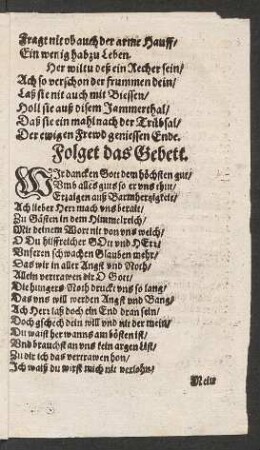 Fragt nit ob auch der arme Hauff/
Ein wenig hab zu Leben.
Her wiltu deß ein Recher sein/
Ach so verschon der frummen dein/
Laß sie nit auch mit Biessen/
Holl sie auß disem Jammerthal/
Daß sie ein mahl nach der Trübsal/
Der ewigen Frewd geniessen Ende.
Folget das Gebett.
WIr dancken Gott dem höchsten gut/
Vmb alles guts so er vns thut/
Erzaigen auß Barmhertzigkeit/
Ach lieber Herr mach vns berait/
Zu Gästen in dem Himmelreich/
Mit deinem Wort nit von vns welch/
O Du hilfreicher GOtt vnd HErr/
Vnseren schwachen Glauben mehr/
Das wir in aller Angst vnd Noth/
Allein vertrawen dir O Gott/
Die hungers Noth druckt vns so lang/
Das vns will werden Angst vnd Bang/
Ach Herr laß doch ein End dran sein/
Doch gschech dein will vnd nit der mein/
Du waist her wanns am bösten ist/
Vnd brauchst an vns kein argen List/
Zu dir ich das vertrawen hon/
Ich waiß du wirst mich nit verlohn/
Mein